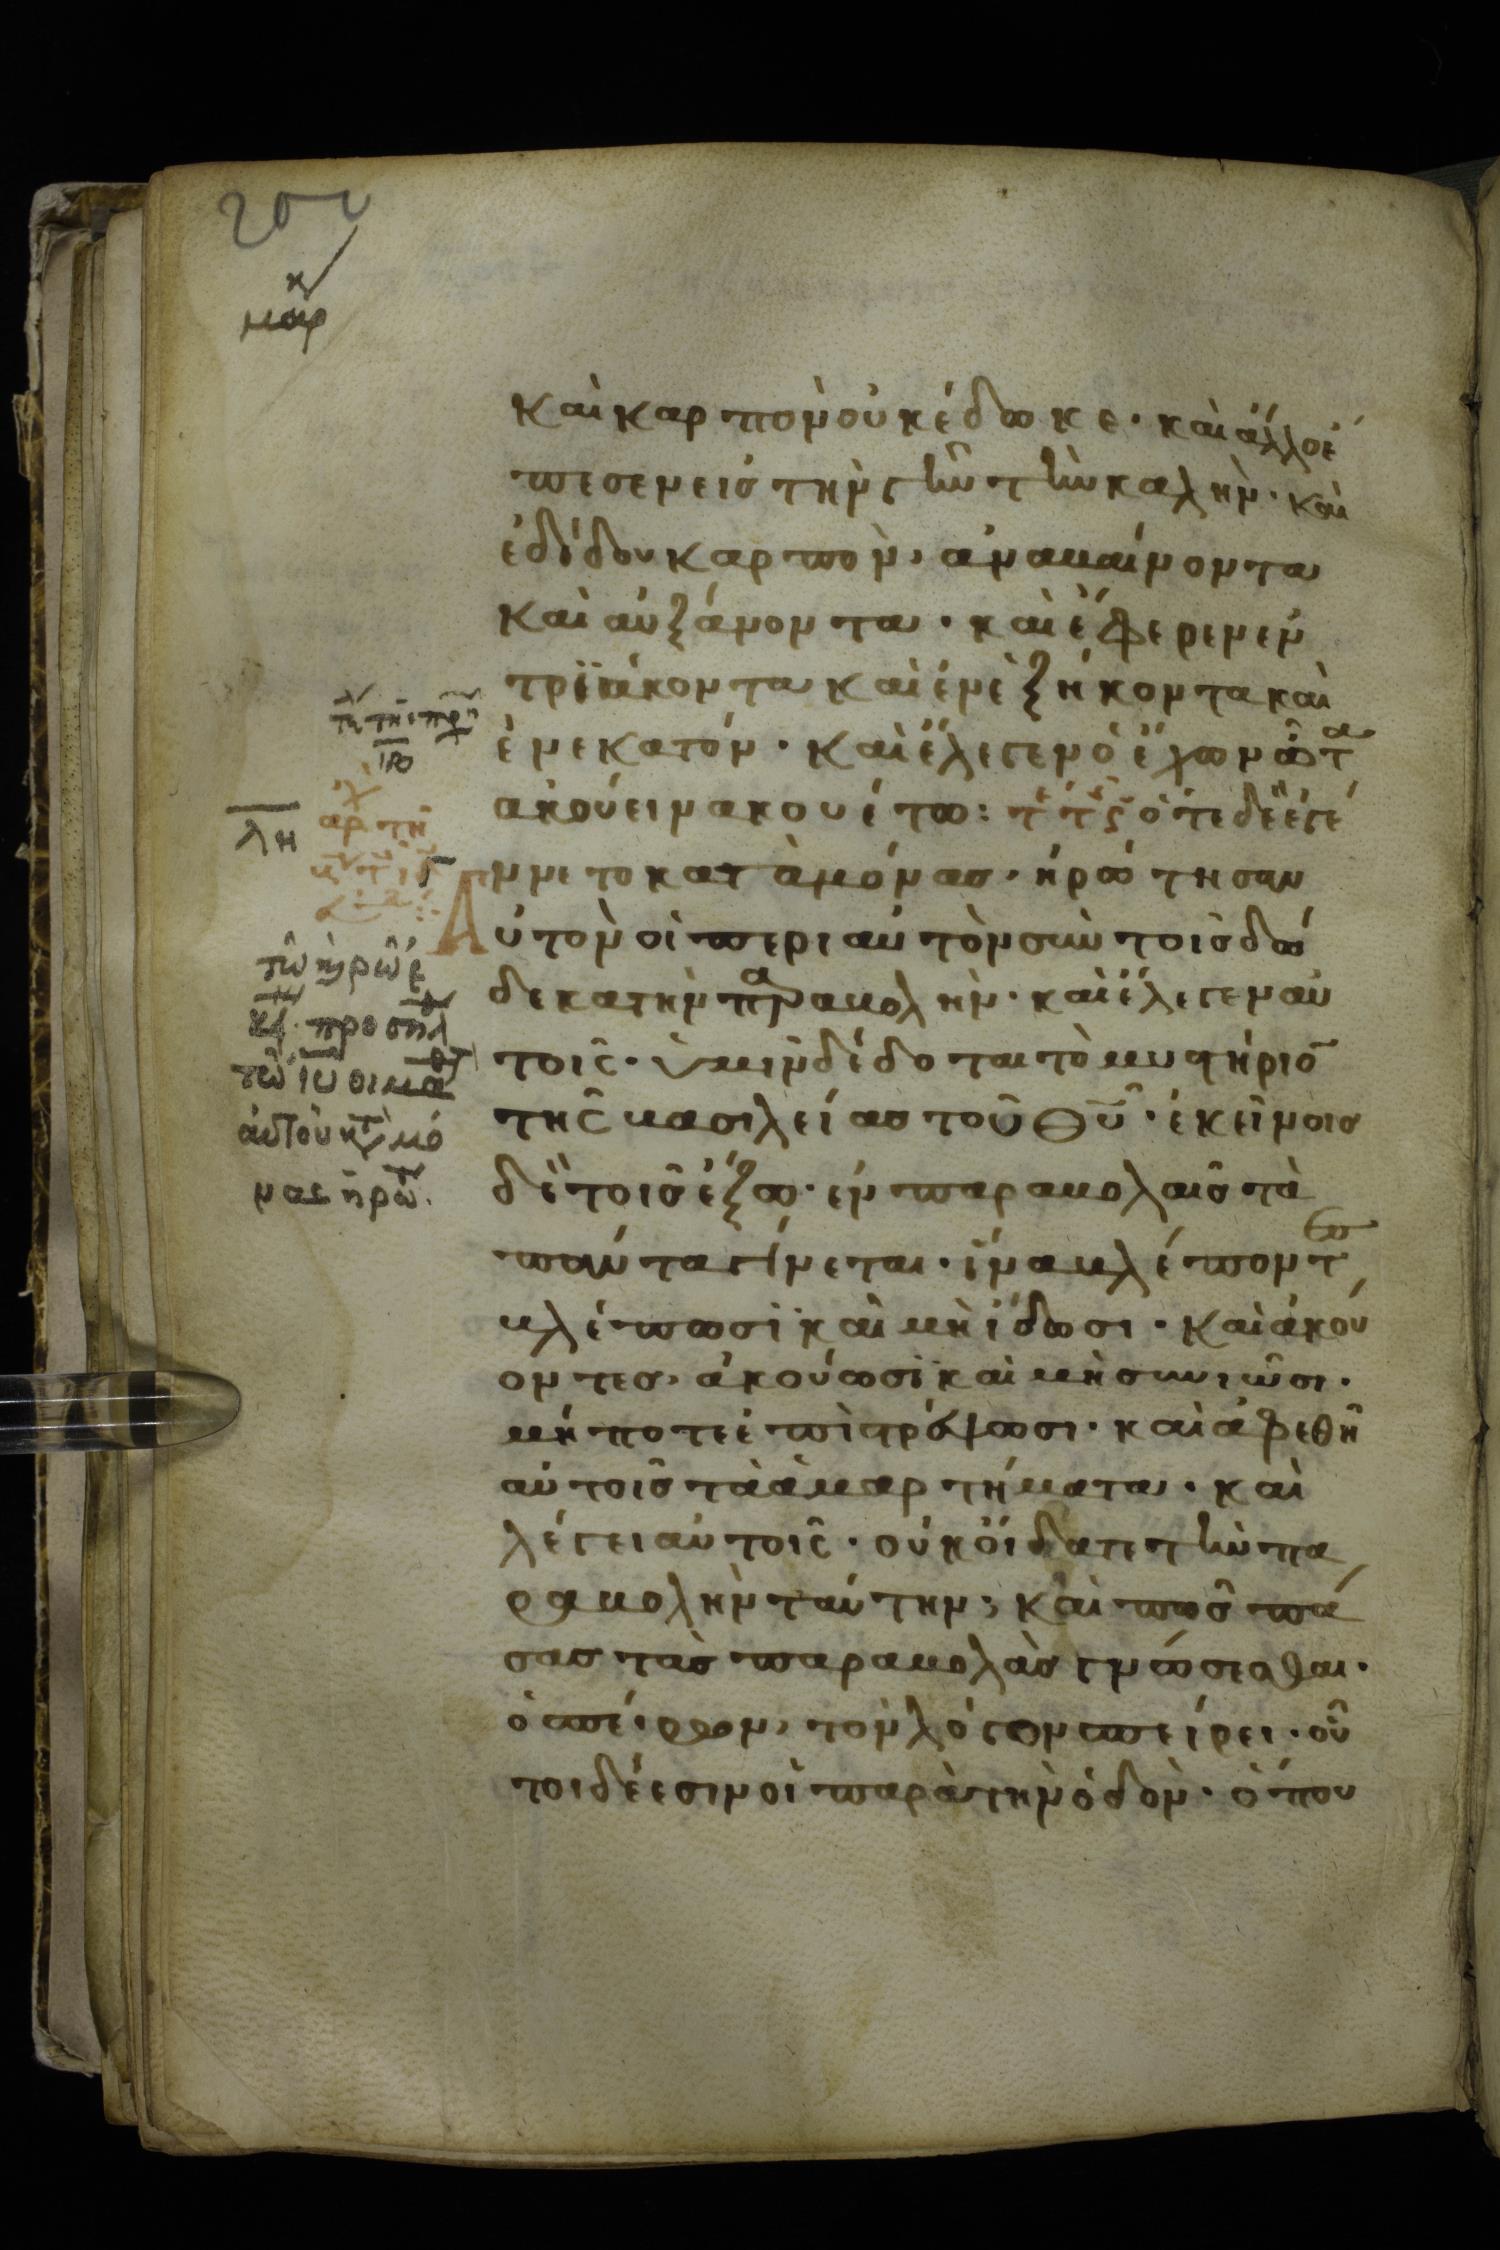 μάρκ
καὶ καρπὸν οὐκ ἔδωκε· καὶ ἄλλο ἔ
πεσεν εἰς τὴν γῆν τὴν καλὴν· καὶ
ἐδίδου καρπὸν, ἀναβαίνοντα
καὶ αὐξάνοντα· καὶ ἔφερεν ἓν
τριάκοντα καὶ ἓν ἑξήκοντα καὶ
ἓν ἑκατόν· καὶ ἔλεγεν ὁ ἔχων ὦτα
ἀκούειν ἀκουέτω: ὅτε δὲ ἐγέ
λη
ννετο καταμόνας, ἠρώτησαν
αὐτὸν οἱ περὶ αὐτὸν σὺν τοῖς δώ
δεκα τὴν παραβολὴν· καὶ ἔλεγεν αὐ
τοῖς· ὑμῖν δέδοται τὸ μυστήριο̄
τῆς βασιλείας τοῦ θῡ· ἐκείνοις
δὲ τοῖς ἔξω· ἐν παραβολαῖς τὰ
πάντα γίνεται· ἵνα βλέποντες
βλέπωσι καὶ μὴ ἴδωσι· καὶ ἀκού
οντες, ἀκούωσι καὶ μὴ συνιῶσι·
μήποτε ἐπιστρέψωσι· καὶ ἀφεθῆ
αὐτοῖς τὰ ἁμαρτήματα· καὶ
λέγει αὐτοῖς· οὐκ οἴδατε τὴν πα
ραβολὴν ταύτην; καὶ πῶς πά
σας τὰς παραβολὰς γνώσεσθαι·
ὁ σπείρων, τὸν λόγον σπείρει· οὗ
τοι δέ εσιν οἱ παρὰ τὴν ὁδὸν· ὅπου